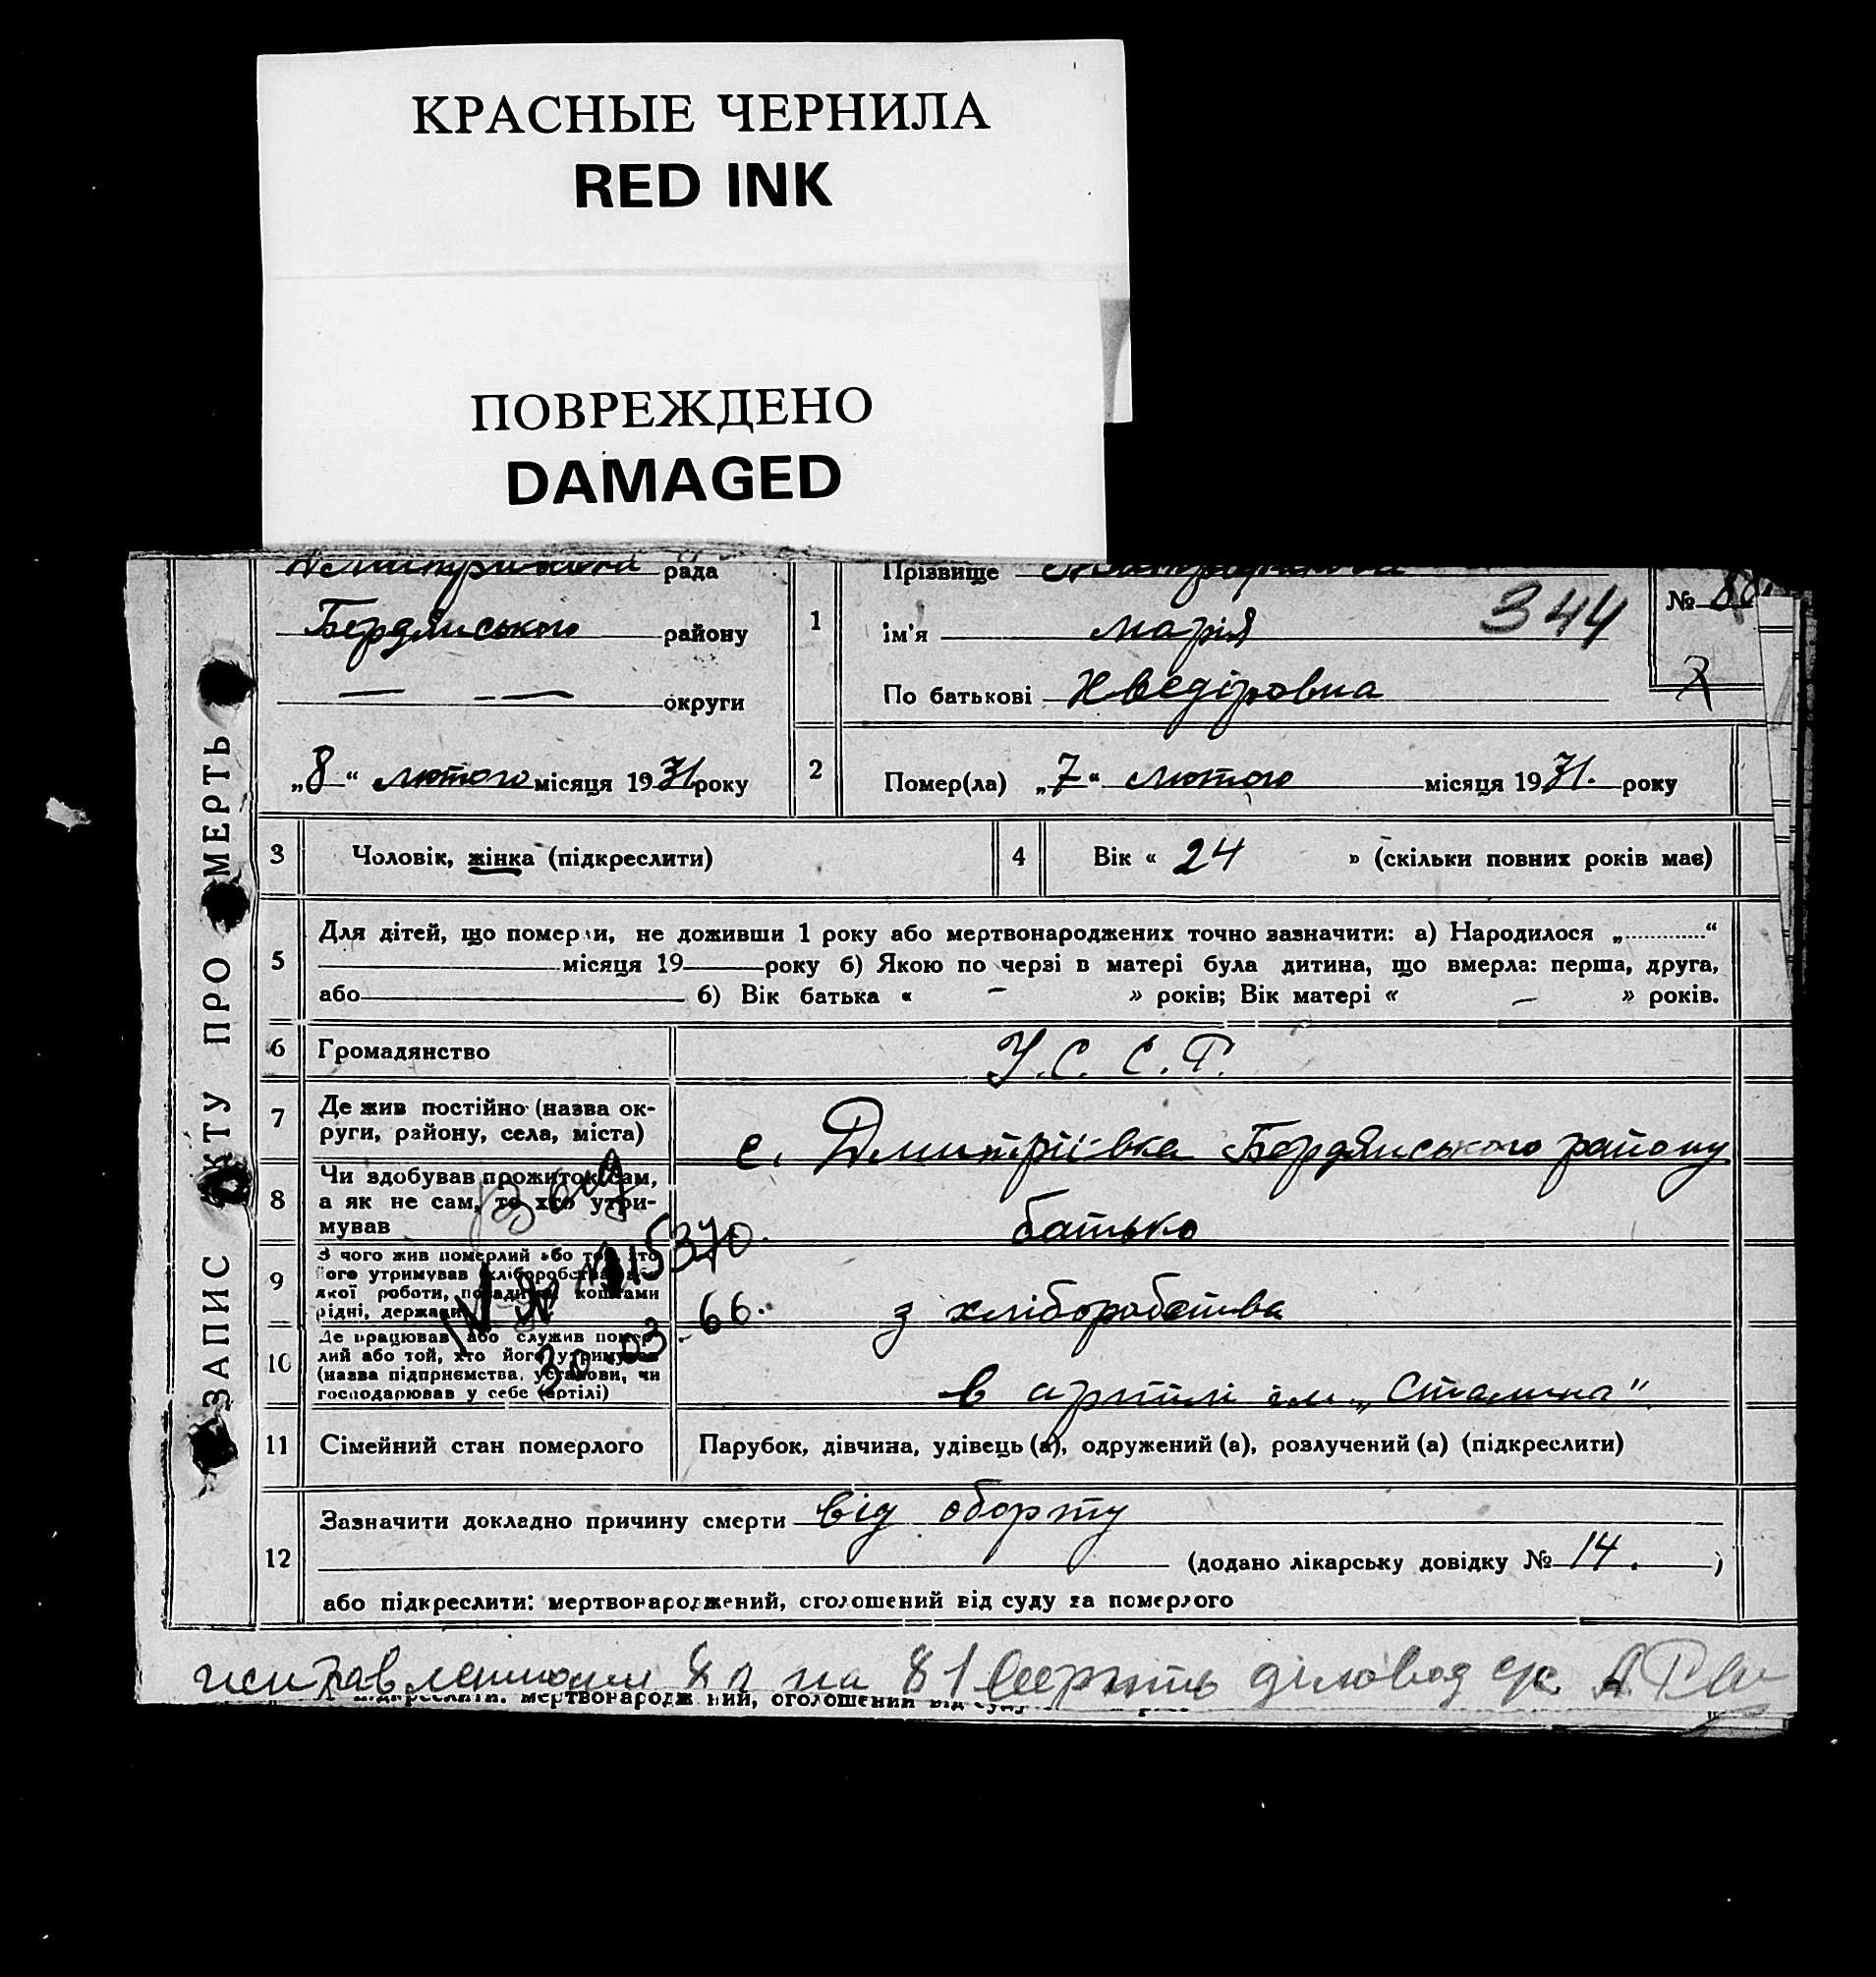 КРАСНЫЕ ЧЕРНИЛА
RED INK
ПОВРЕЖДЕНО
DAMAGED
ЗАПИС АКТУ ПРО СМЕРТЬ
рада
Бердянського району
округи
„8“ лютого місяця 1931 року
1
Прізвище
ім'я марія
По батькові
344
№
2
Помер(ла) „7“ лютого місяця 1931. року
3 Чоловік, жінка (підкреслити)
4 Вік « 24 » (скільки повних років має)
5
Для дітей, що померли, не доживши 1 року або мертвонароджених точно зазначити: а) Народилося „ “
місяця 19 року б) Якою по черзі в матері була дитина, що вмерла: перша, друга,
або б) Вік батька « – » років; Вік матері « – » років.
6 Громадянство У.С.С.Р.
7
Де жив постійно (назва ок-
руги, району, села, міста)
с. Дмитріївка Бердянського району
8
Чи здобував прожиток сам,
а як не сам, то хто утри-
мував
батько
9
З чого жив померлий або той, хто
його утримував
якої роботи, коштами
рідні, держави
з хліборобства
10
Де працював або служив помер-
лий або той, хто його утримував
(назва підприємства, установи, чи
господарював у себе (артілі)
в артілі ім. „Сталина“
5370.
30-03-66.
11 Сімейний стан померлого
Парубок, дівчина, удівець (а), одружений (а), розлучений (а) (підкреслити)
12
Зазначити докладно причину смерти від аборту
(додано лікарську довідку № 14. )
або підкреслити: мертвонароджений, оголошений від суду за померлого
на 81 діловод
підкреслити: мертвонароджений, оголошений від суду